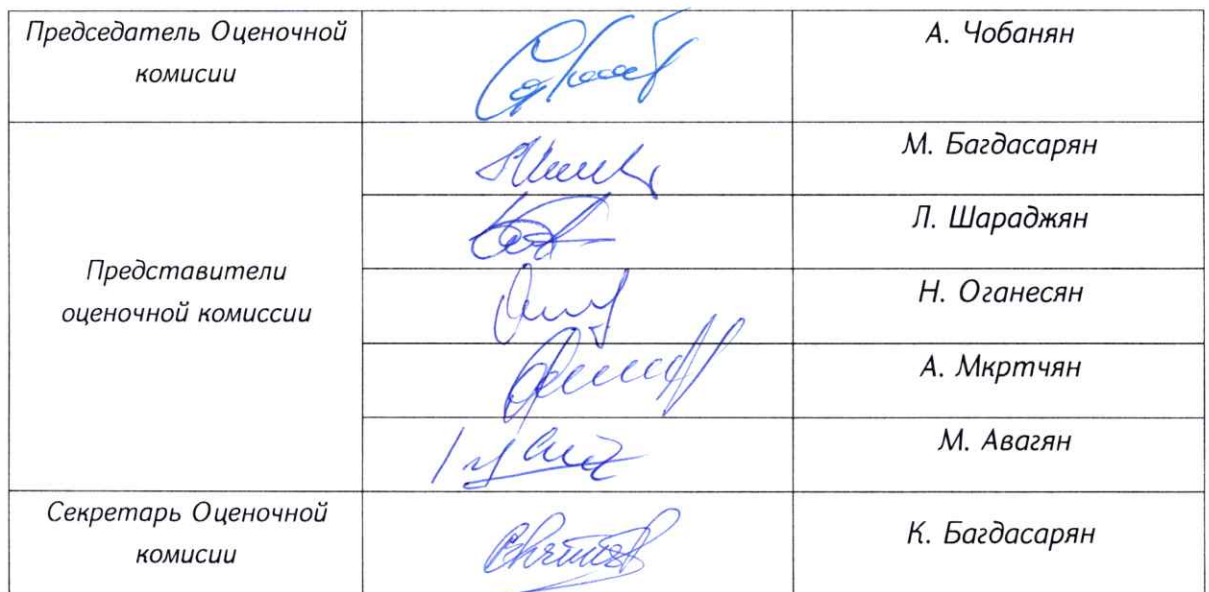 Председатель Оценочной
комисии
А. Чобанян
Представители
оценочной комиссии
М. Багдасарян
Л. Шараджян
Н. Оганесян
А. Мкртчян
М. Авагян
Секретарь Оценочной
комисии
К. Багдасарян